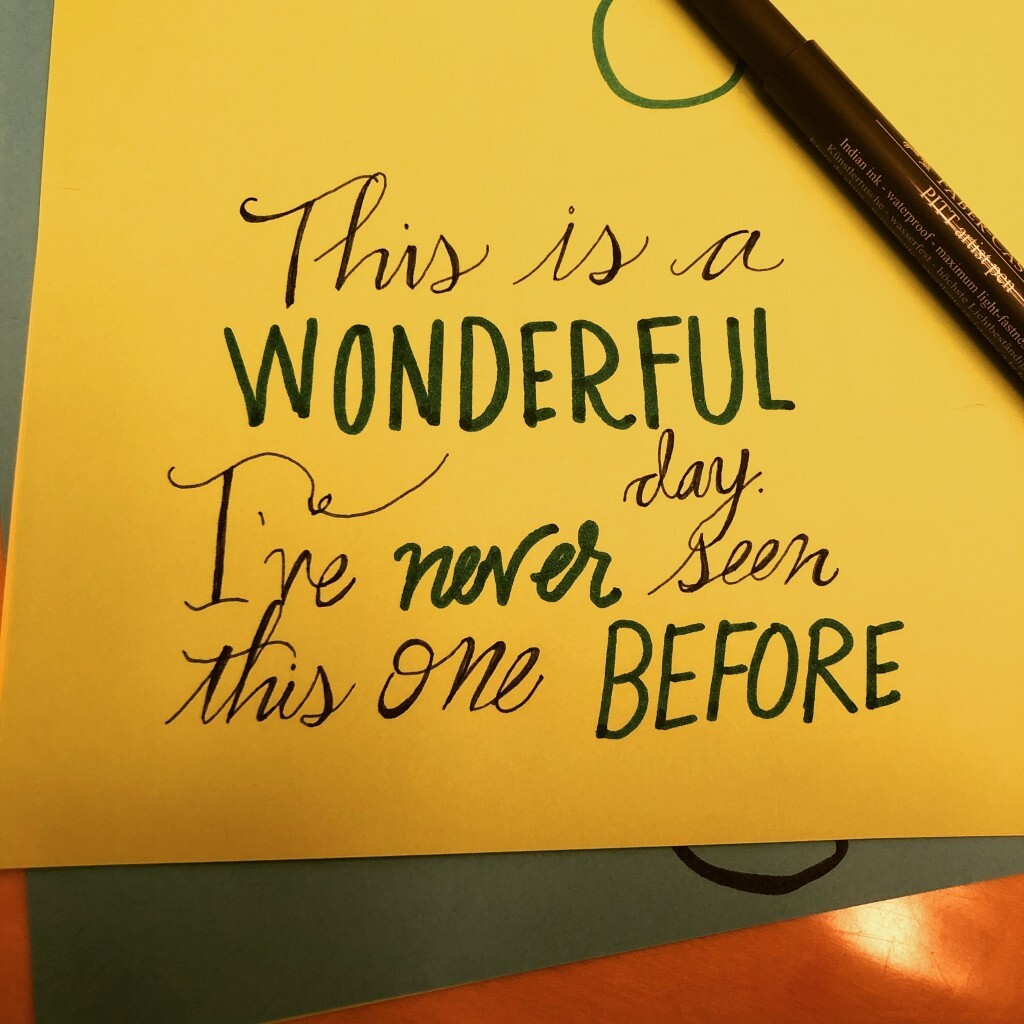 This is a
WONDERFUL
day.
I've never seen
this one BEFORE
PITT artist pen
Indian ink - waterproof - maximum light-fastne
Künstlertusche - wasserfest - höchste Lichtbeständi